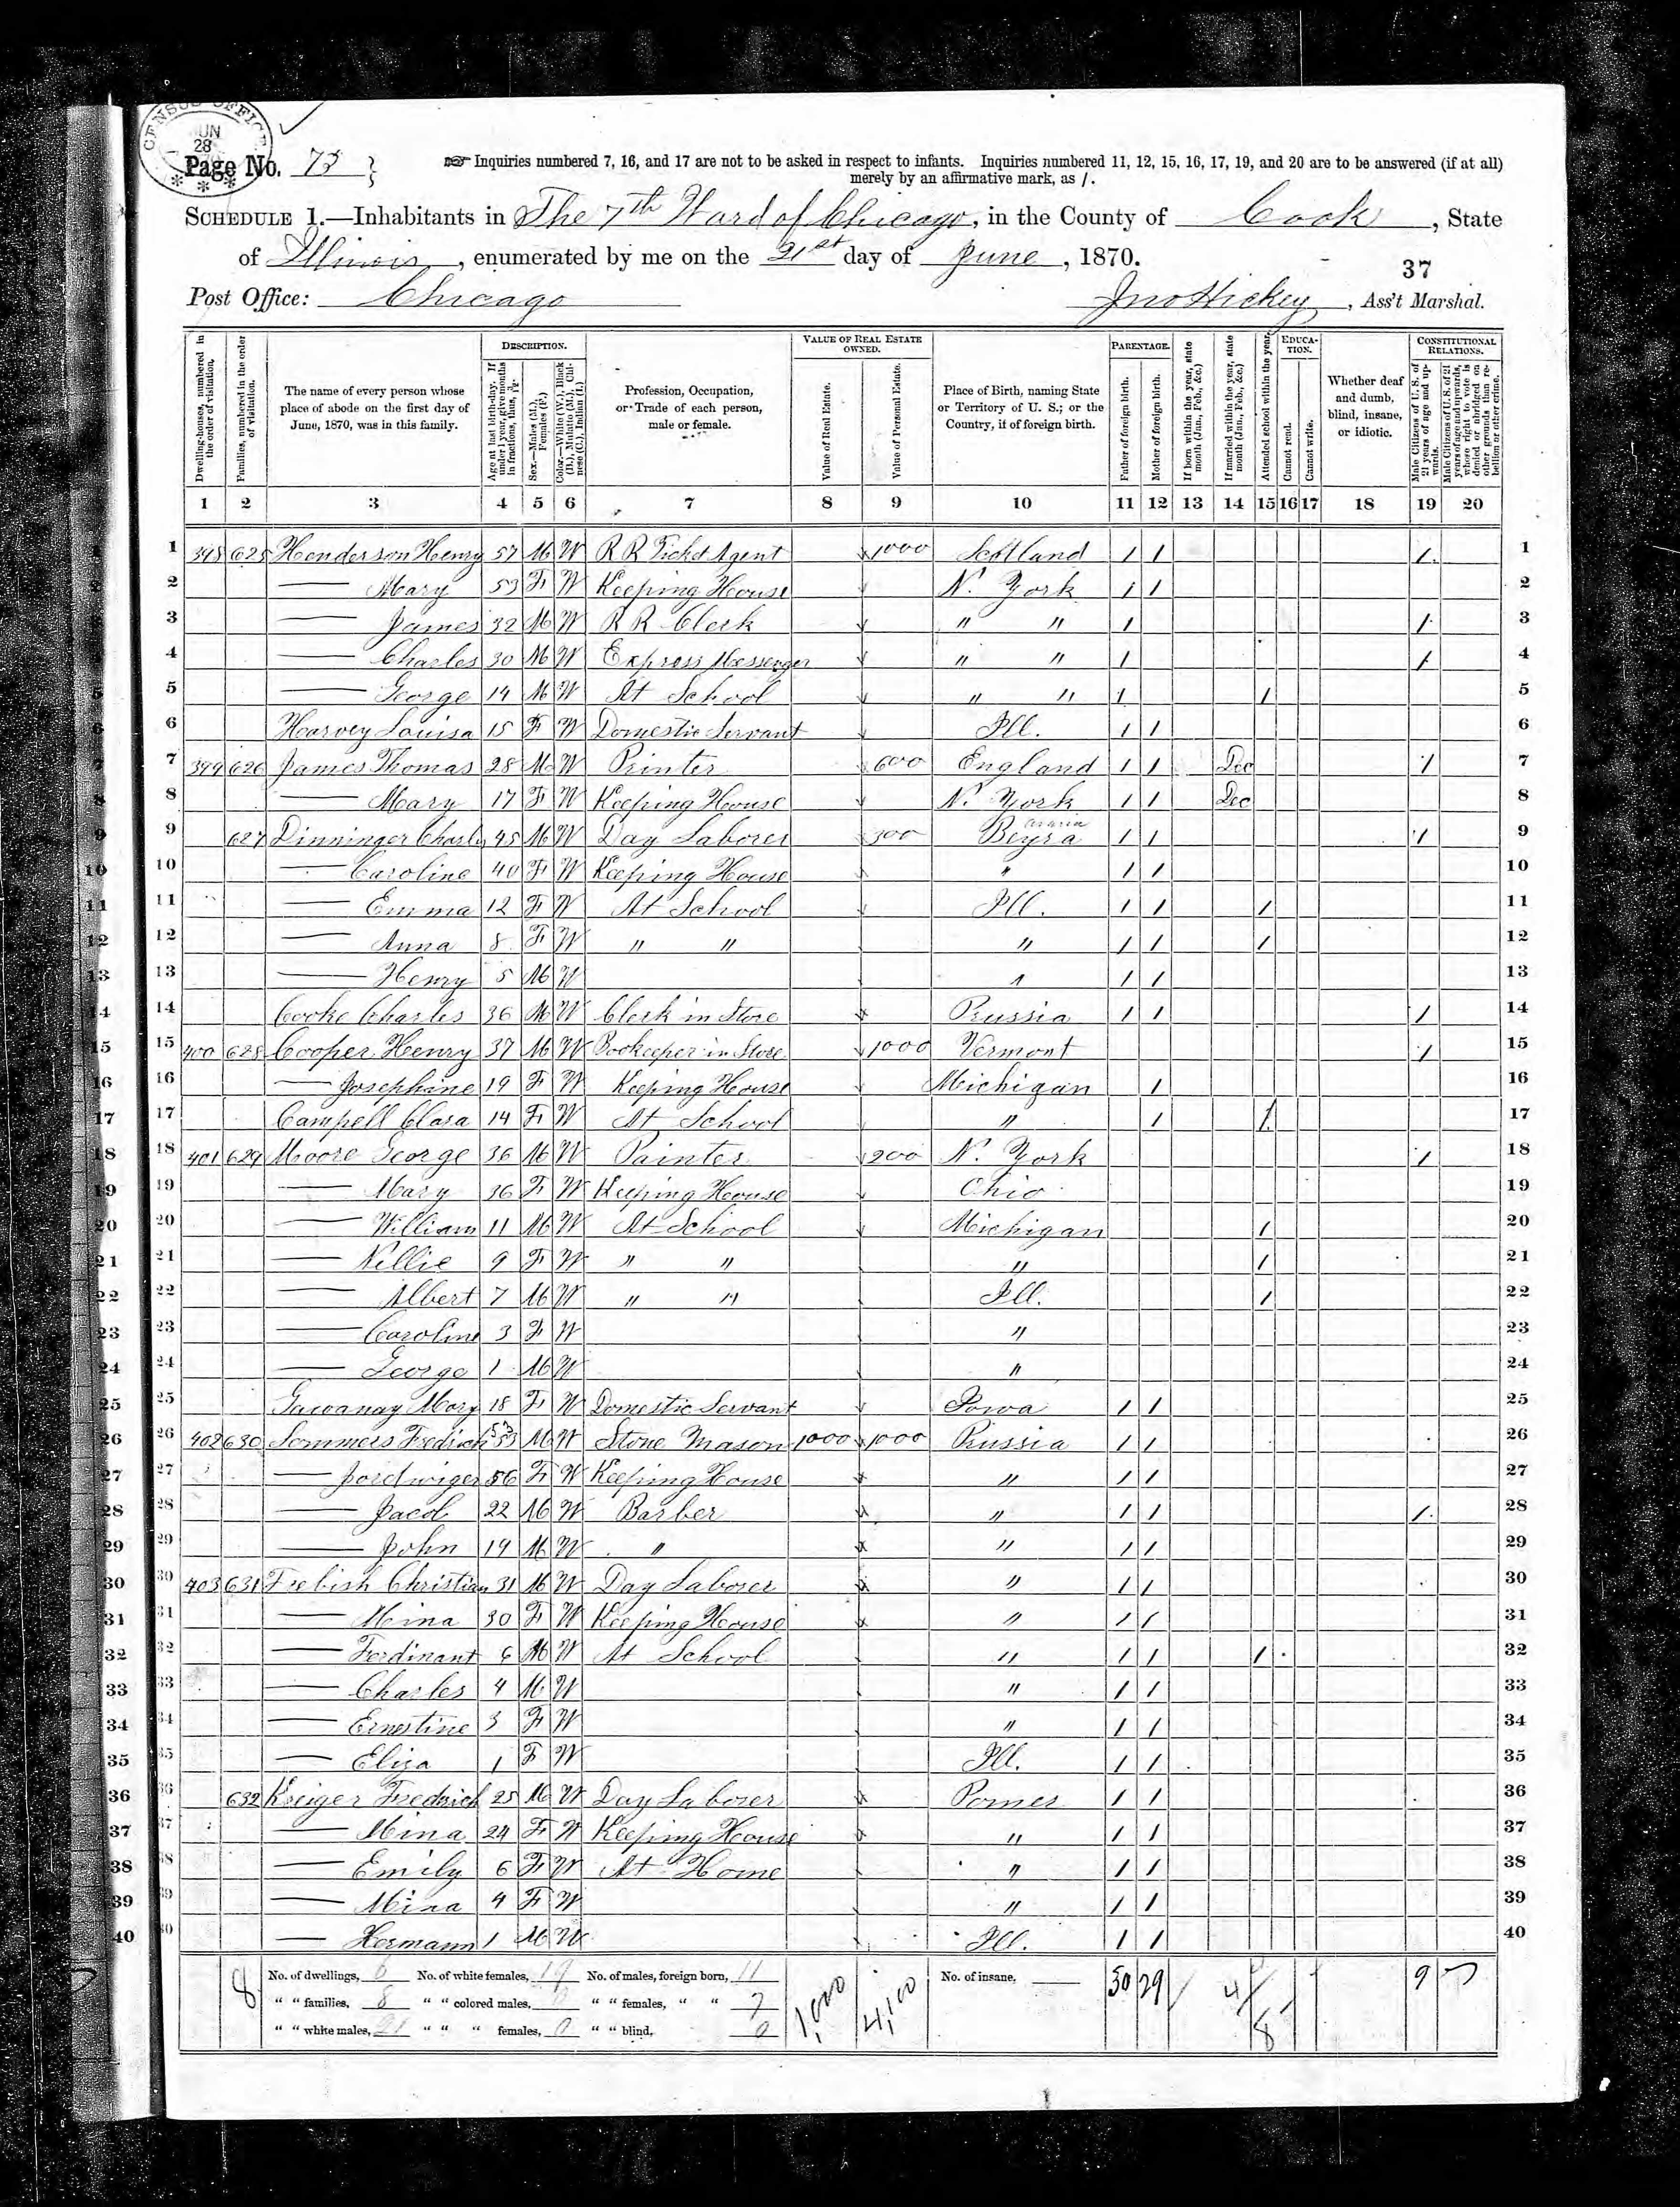 CENSUS OFFICE
JUN
28
Page No. 73
Inquiries numbered 7, 16, and 17 are not to be asked in respect to infants. Inquiries numbered 11, 12, 15, 16, 17, 19, and 20 are to be answered (if at all)
merely by an affirmative mark, as /.
SCHEDULE 1.—Inhabitants in The 7th Ward of Chicago, in the County of Cook, State
of Illinois, enumerated by me on the 21st day of June, 1870.
37
Post Office: Chicago Jno Hickey, Ass't Marshal.
Dwelling-houses, numbered in the order of visitation.
Families, numbered in the order of visitation.
The name of every person whose place of abode on the first day of June, 1870, was in this family.
DESCRIPTION.
Age at last birth-day. If under 1 year, give months in fractions, thus, 3/12.
Sex.—Males (M.), Females (F.)
Color.—White (W.), Black (B.), Mulatto (M.), Chinese (C.), Indian (I.)
Profession, Occupation, or Trade of each person, male or female.
VALUE OF REAL ESTATE OWNED.
Value of Real Estate.
Value of Personal Estate.
Place of Birth, naming State or Territory of U. S.; or the Country, if of foreign birth.
PARENTAGE.
Father of foreign birth.
Mother of foreign birth.
If born within the year, state month (Jan., Feb., &c.)
If married within the year, state month (Jan., Feb., &c.)
Attended school within the year.
EDUCATION.
Cannot read.
Cannot write.
Whether deaf and dumb, blind, insane, or idiotic.
CONSTITUTIONAL RELATIONS.
Male Citizens of U. S. of 21 years of age and upwards.
Male Citizens of U. S. of 21 years of age and upwards, where right to vote is denied or abridged on other grounds than rebellion or other crime.
1 2 3 4 5 6 7 8 9 10 11 12 13 14 15 16 17 18 19 20
1 398 625 Henderson Henry 57 M W R R Ticket Agent 1000 Scotland / / / 1
2 — Mary 53 F W Keeping House N. York / / 2
3 — James 32 M W R R Clerk " " / / 3
4 — Charles 30 M W Express Messenger " " / / 4
5 — George 14 M W At School " " / / 5
6 Harvey Louisa 15 F W Domestic Servant Ill. / / 6
7 399 626 James Thomas 28 M W Printer 600 England / / Dec / 7
8 — Mary 17 F W Keeping House N. York / / Dec 8
9 627 Dinninger Charly 45 M W Day Laborer 300 Beyra avaria / / / 9
10 — Caroline 40 F W Keeping House " / / 10
11 — Emma 12 F W At School Ill. / / / 11
12 — Anna 8 F W " " " / / / 12
13 — Henry 5 M W " / / 13
14 Cooke Charles 36 M W Clerk in Store Prussia / / / 14
15 400 628 Cooper Henry 37 M W Bookeeper in Store 1000 Vermont / 15
16 — Josephine 19 F W Keeping House Michigan / 16
17 Campell Clara 14 F W At School " / / 17
18 401 629 Moore George 36 M W Painter 200 N. York / 18
19 — Mary 36 F W Keeping House Ohio 19
20 — William 11 M W At School Michigan / 20
21 — Nellie 9 F W " " " / 21
22 — Albert 7 M W " " Ill. / 22
23 — Caroline 3 F W " 23
24 — George 1 M W " 24
25 Mary 18 F W Domestic Servant Iowa / / 25
26 402 630 Sommers Fedrich 53 M W Stone Mason 1000 1000 Prussia / / 26
27 — 56 F W Keeping House " / / 27
28 — Jacob 22 M W Barber " / / / 28
29 — John 19 M W " " / / 29
30 403 631 Frebish Christian 31 M W Day Laborer " / / 30
31 — Mina 30 F W Keeping House " / / 31
32 — Ferdinant 6 M W At School " / / / 32
33 — Charles 4 M W " / / 33
34 — Ernestine 3 F W " / / 34
35 — Eliza 1 F W Ill. / / 35
36 632 Kreiger Fredrich 25 M W Day Laborer Pomer / / 36
37 — Mina 24 F W Keeping House " / / 37
38 — Emily 6 F W At Home " / / 38
39 — Mina 4 F W " / / 39
40 — Hermann 1 M W Ill. / / 40
8 No. of dwellings, 6 No. of white females, 19 No. of males, foreign born, 11 1,000 4,100 No. of insane, — 30 29 / 4/8 9
" " families, 8 " " colored males, 0 " " females, " " 7
" " white males, 21 " " " females, 0 " " blind, 0